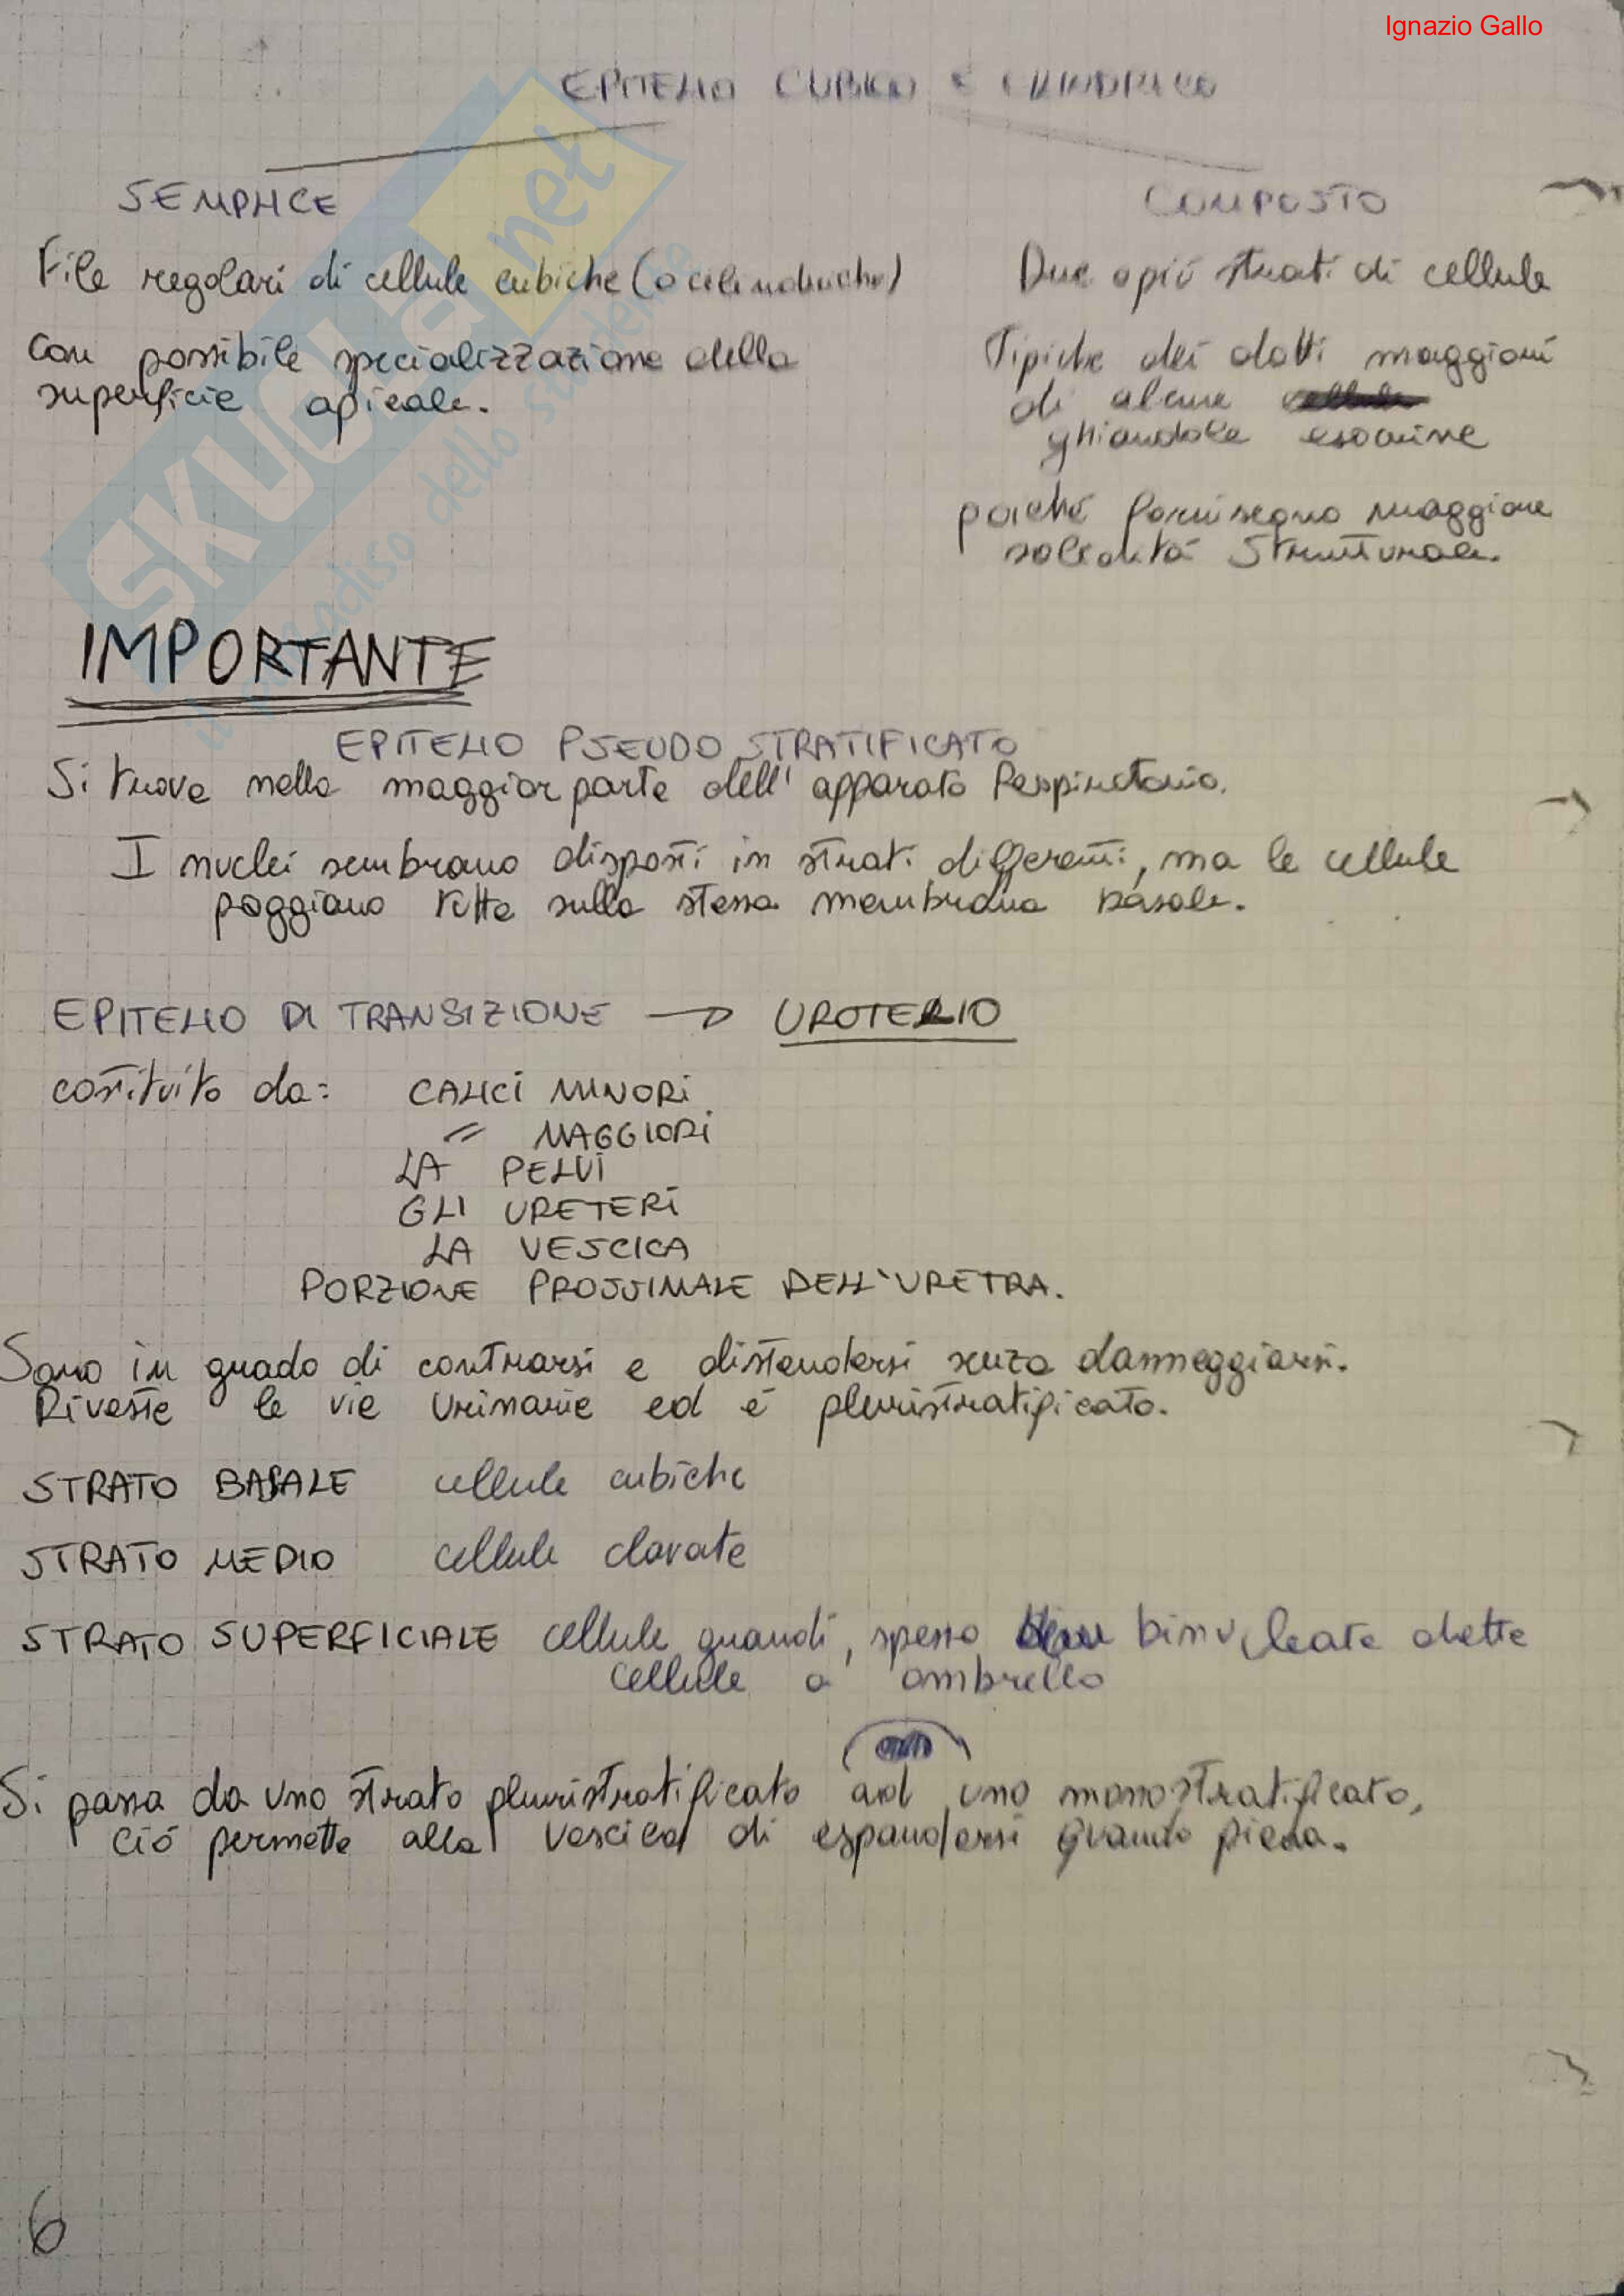 Ignazio Gallo
EPITELIO CUBICO E CILINDRICO
SEMPLICE
File regolari di cellule cubiche (o cilindriche)
con possibile specializzazione della
superficie apicale.
COMPOSTO
Due o più strati di cellule
Tipiche dei dotti maggiori
di alcune
ghiandole esocrine
poiché forniscono maggiore
solidità strutturale.
SKUOLA.net
il paradiso dello studente
IMPORTANTE
EPITELIO PSEUDO STRATIFICATO
Si trova nella maggior parte dell' apparato Respiratorio.
I nuclei sembrano disposti in strati differenti, ma le cellule
poggiano tutte sulla stessa membrana basale.
EPITELIO DI TRANSIZIONE → UROTELIO
costituito da: CALICI MINORI
= MAGGIORI
LA PELVI
GLI URETERI
LA VESCICA
PORZIONE PROSSIMALE DELL'URETRA.
Sono in grado di contrarsi e distendersi senza danneggiarsi.
Riveste le vie urinarie ed è pluristratificato.
STRATO BASALE cellule cubiche
STRATO MEDIO cellule clavate
STRATO SUPERFICIALE cellule grandi, spesso binucleate dette
cellule a ombrello
Si passa da uno strato pluristratificato ad uno monostratificato,
ciò permette alla vescica di espandersi quando piena.
6